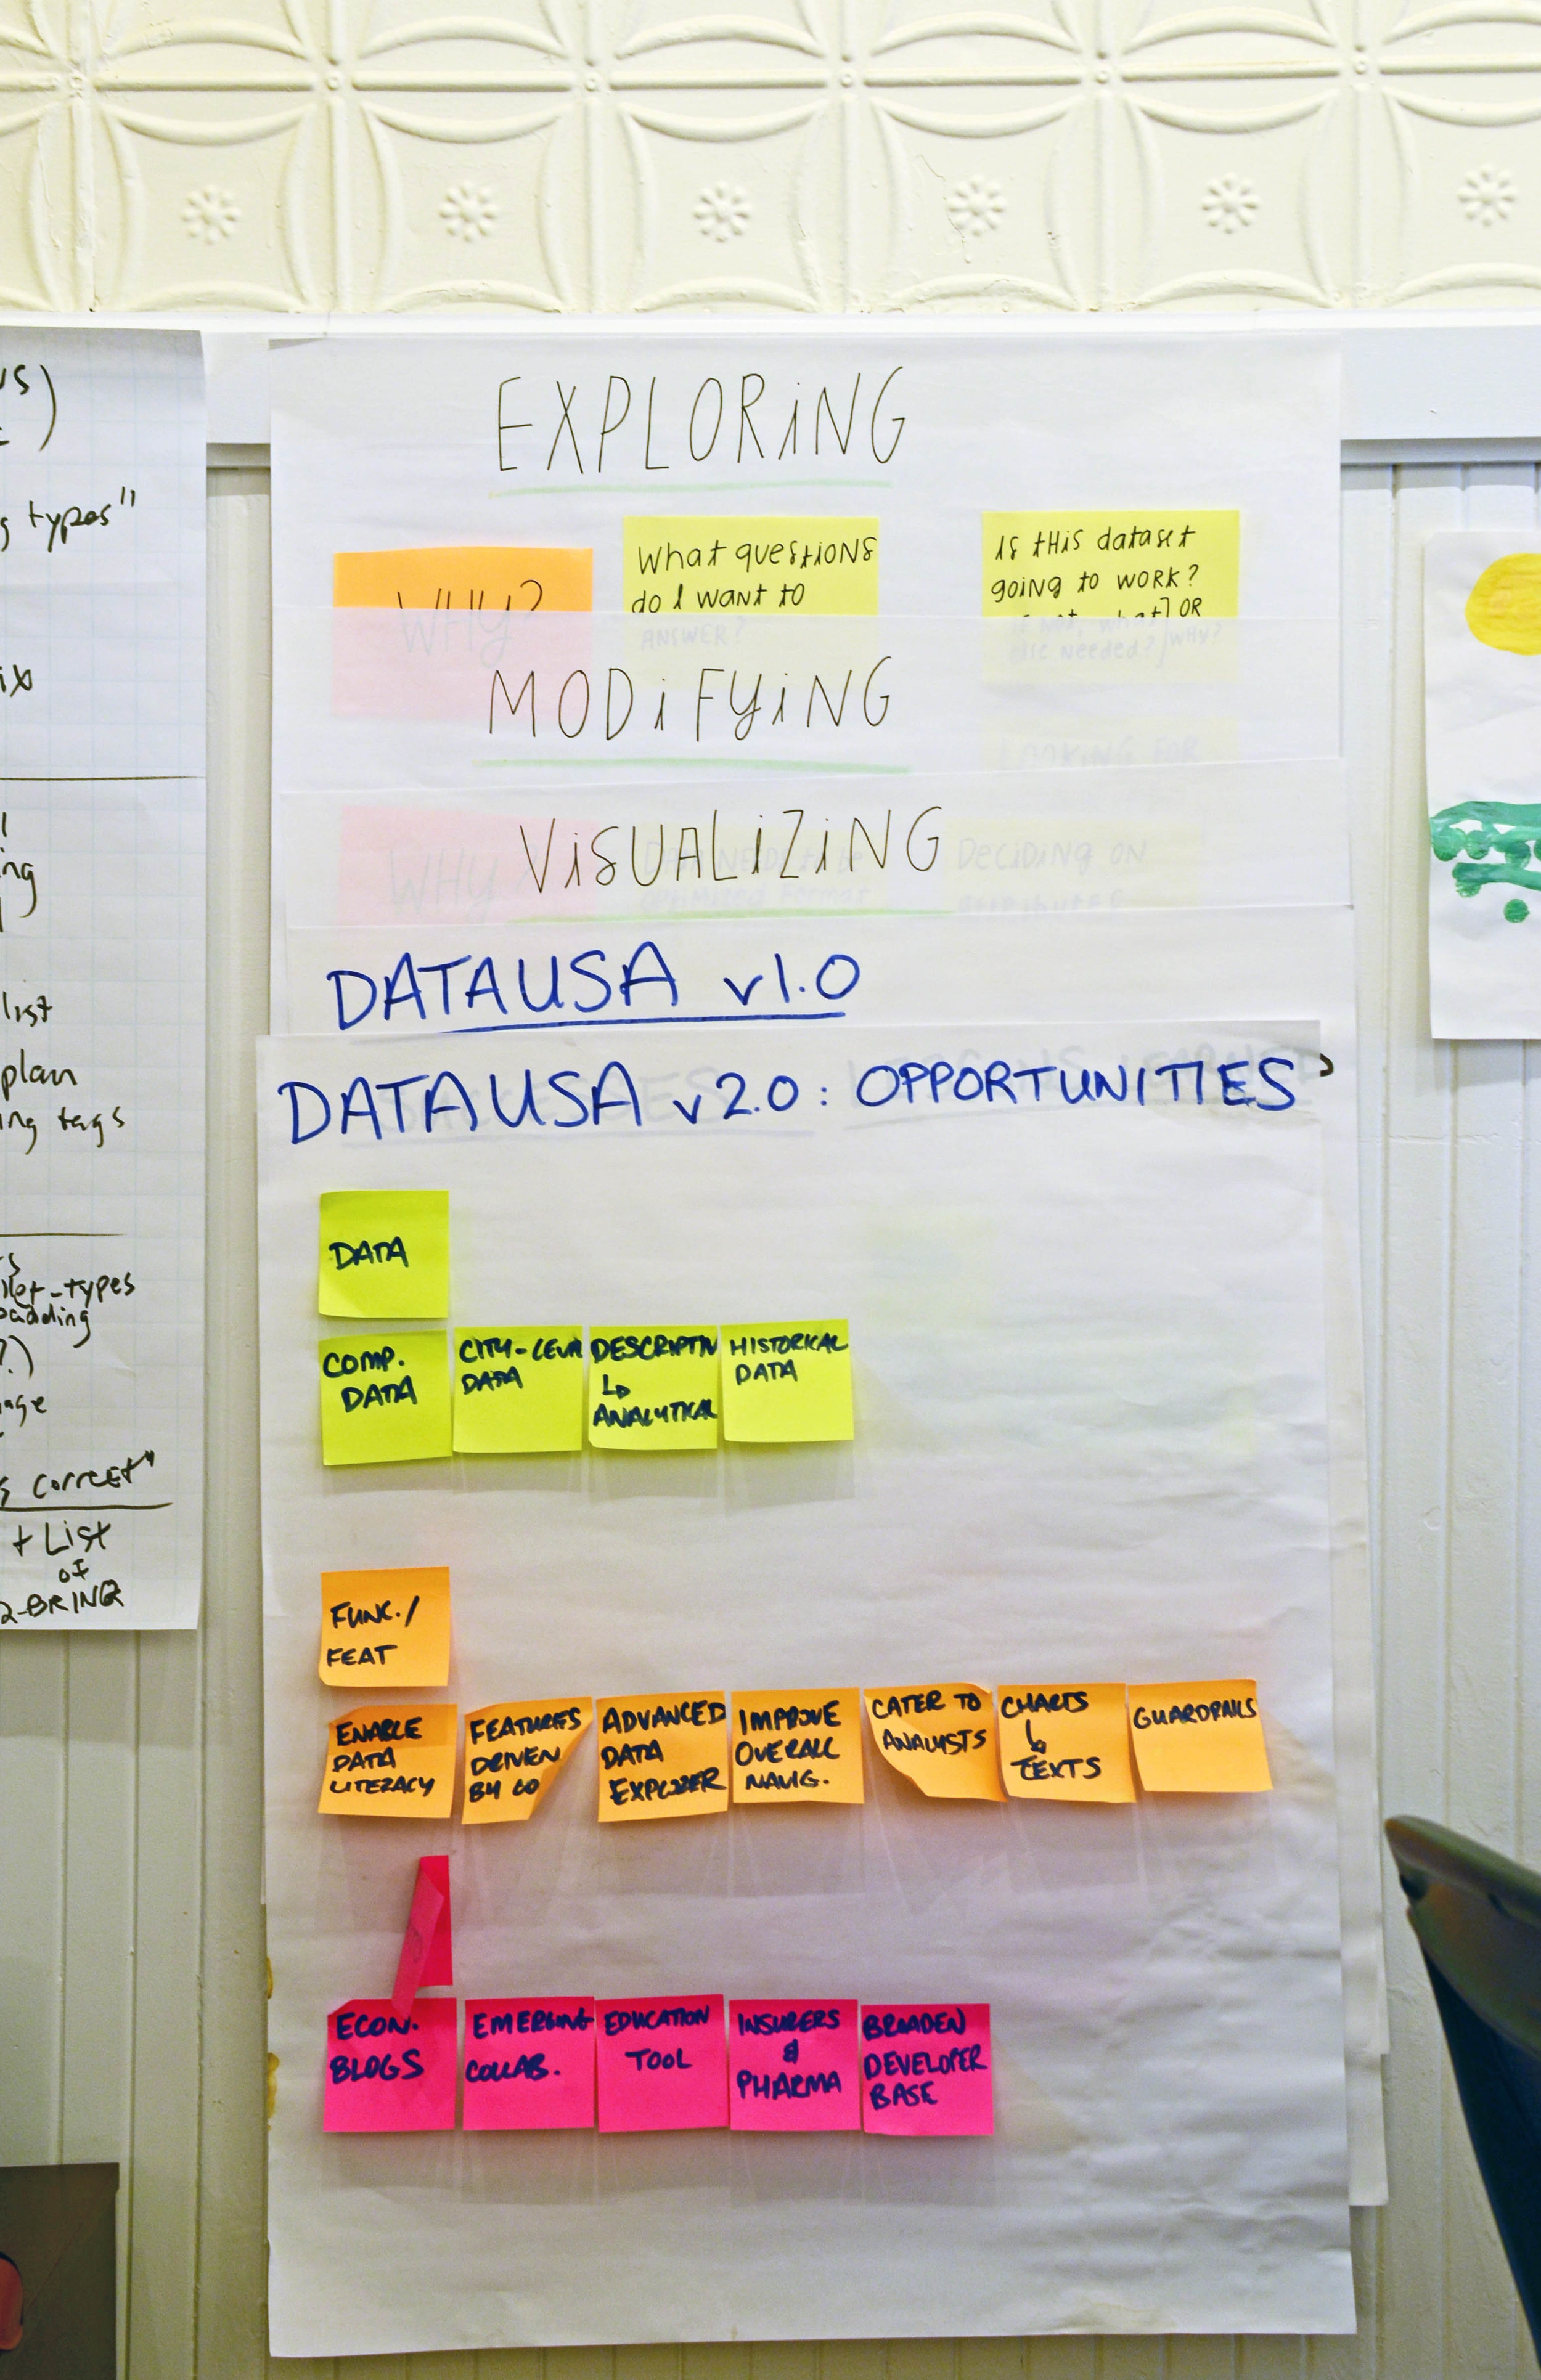 us)
types"
ix
ing
list
plan
ing tags
types
padding
?)
age
s correct"
+ List
of
BRING
EXPLORiNG
WHY?
What questions
do I want to
ANSWER?
Is this dataset
going to work?
OR
else needed? / WHY?
MODiFYiNG
LOOKING FOR
ViSUALiZiNG
WHY
DATA NEEDS to be
optimized format
DeciDiNG ON
DATAUSA v1.0
DATAUSA v2.0: OPPORTUNITIES
DATA
COMP.
DATA
CITY-LEVEL
DATA
DESCRIPTIV
↳
ANALYTICAL
HISTORICAL
DATA
FUNC./
FEAT
ENABLE
DATA
LITERACY
FEATURES
DRIVEN
BY
ADVANCED
DATA
EXPLORER
IMPROVE
OVERALL
NAVIG.
CATER TO
ANALYSTS
CHARTS
↳
TEXTS
GUARDRAILS
ECON.
BLOGS
EMERGING
COLLAB.
EDUCATION
TOOL
INSURERS
&
PHARMA
BROADEN
DEVELOPER
BASE